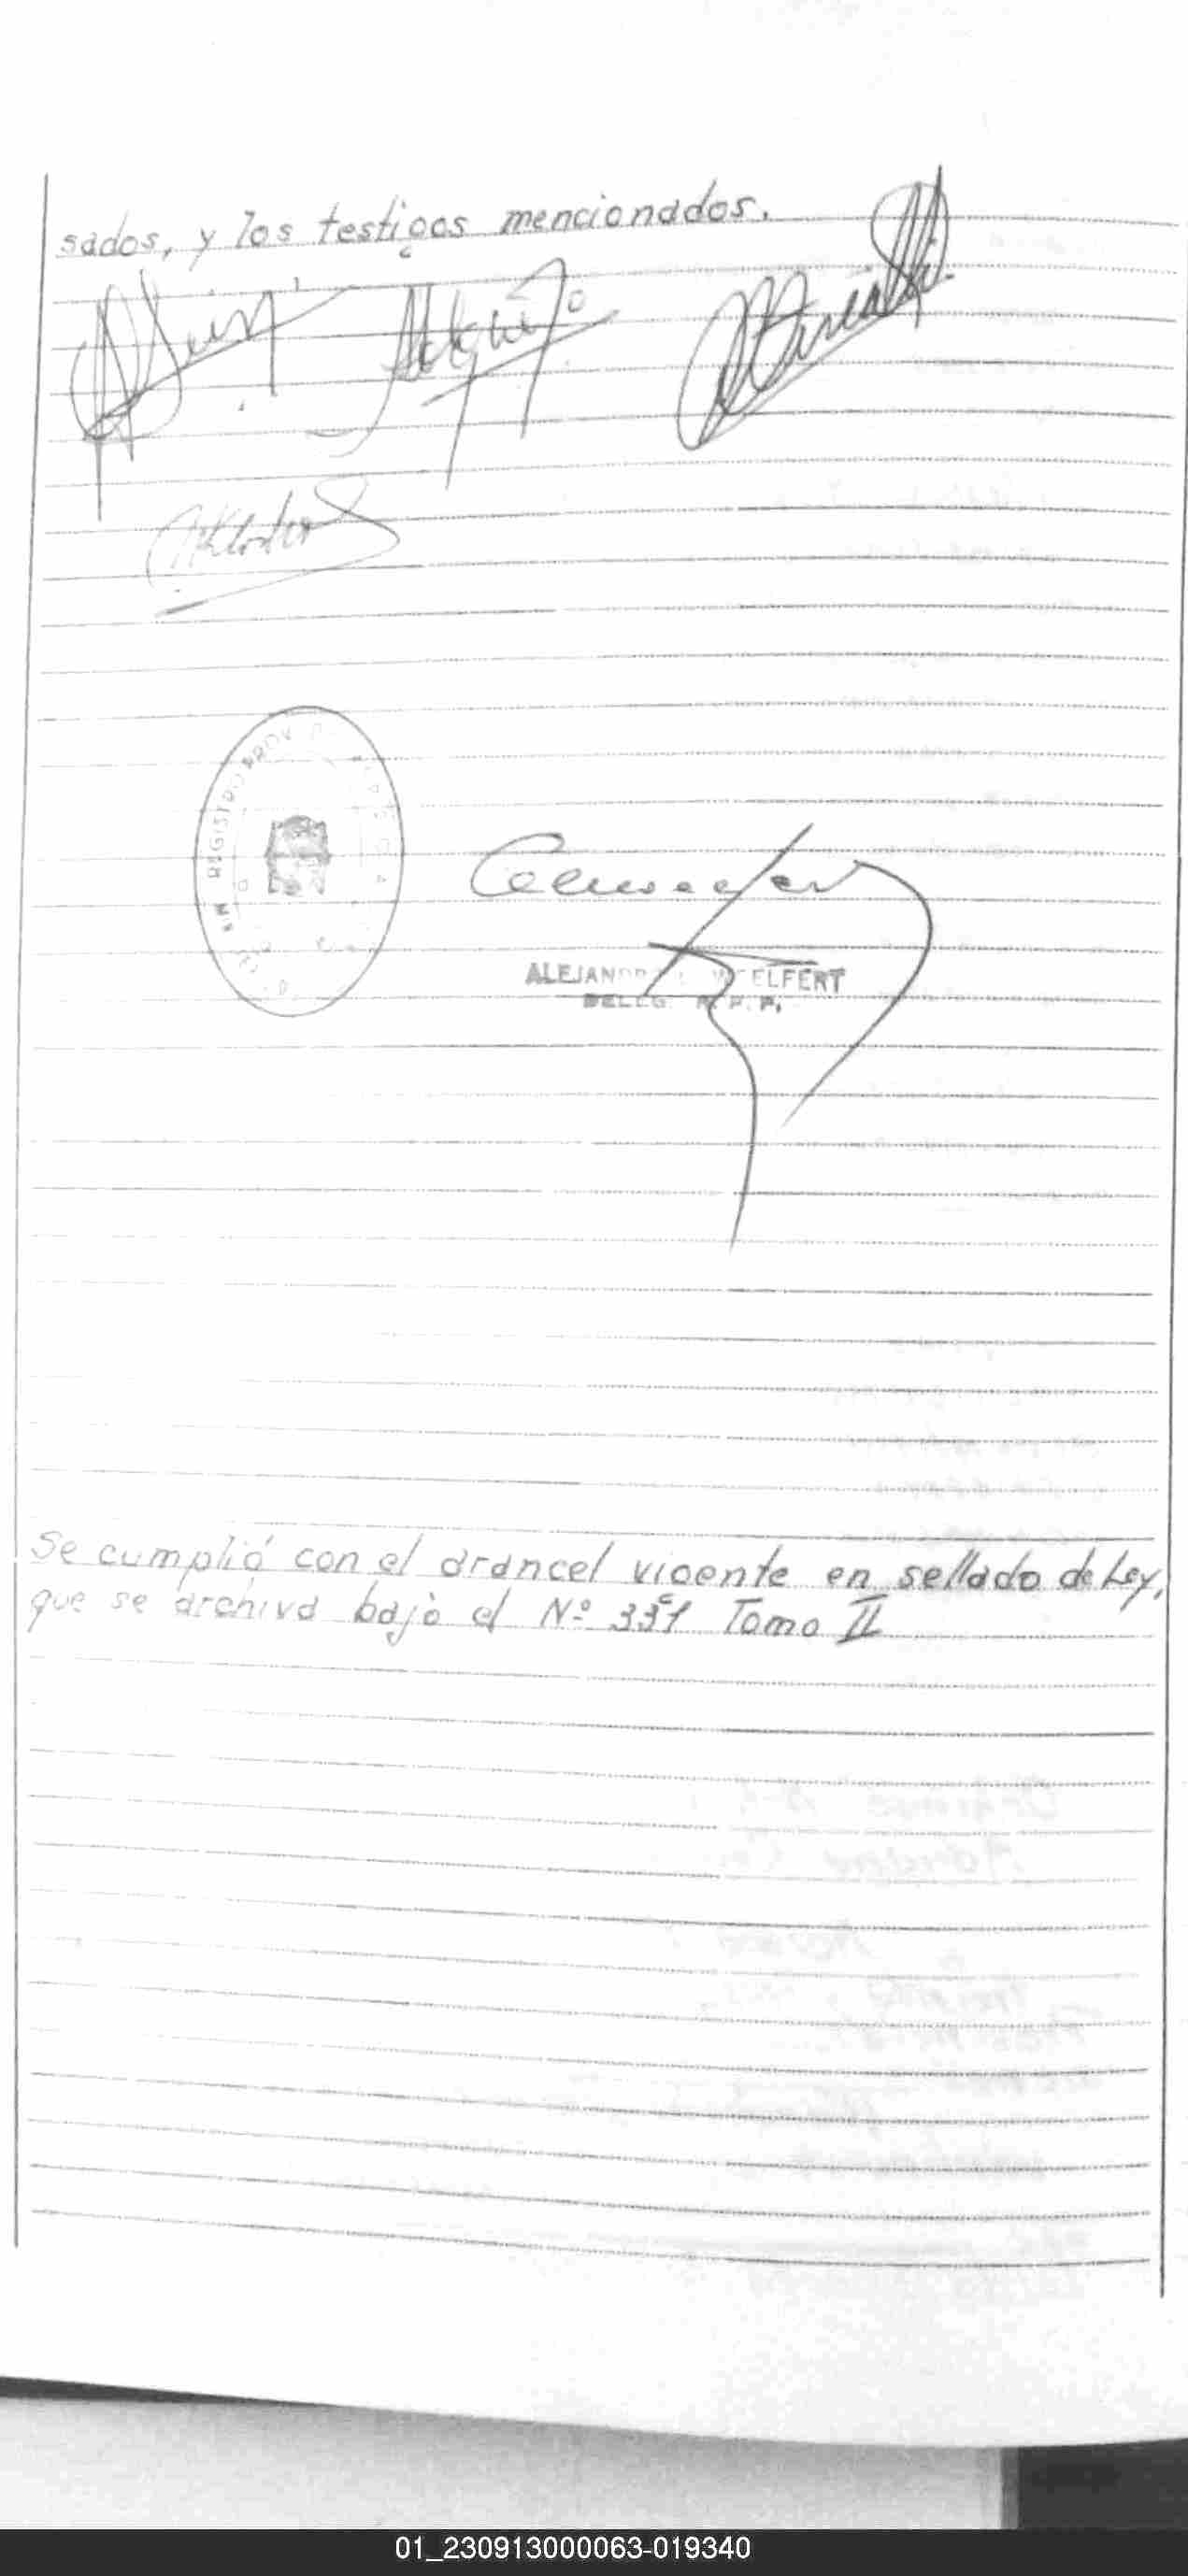 sados, y los testigos mencionados.
REGISTRO PROV
ALEJAN ELFERT
DELEG. R. P. P.
Se cumplió con el arancel vigente en sellado de Ley,
que se archiva bajo el Nº 331 Tomo II
01_230913000063-019340